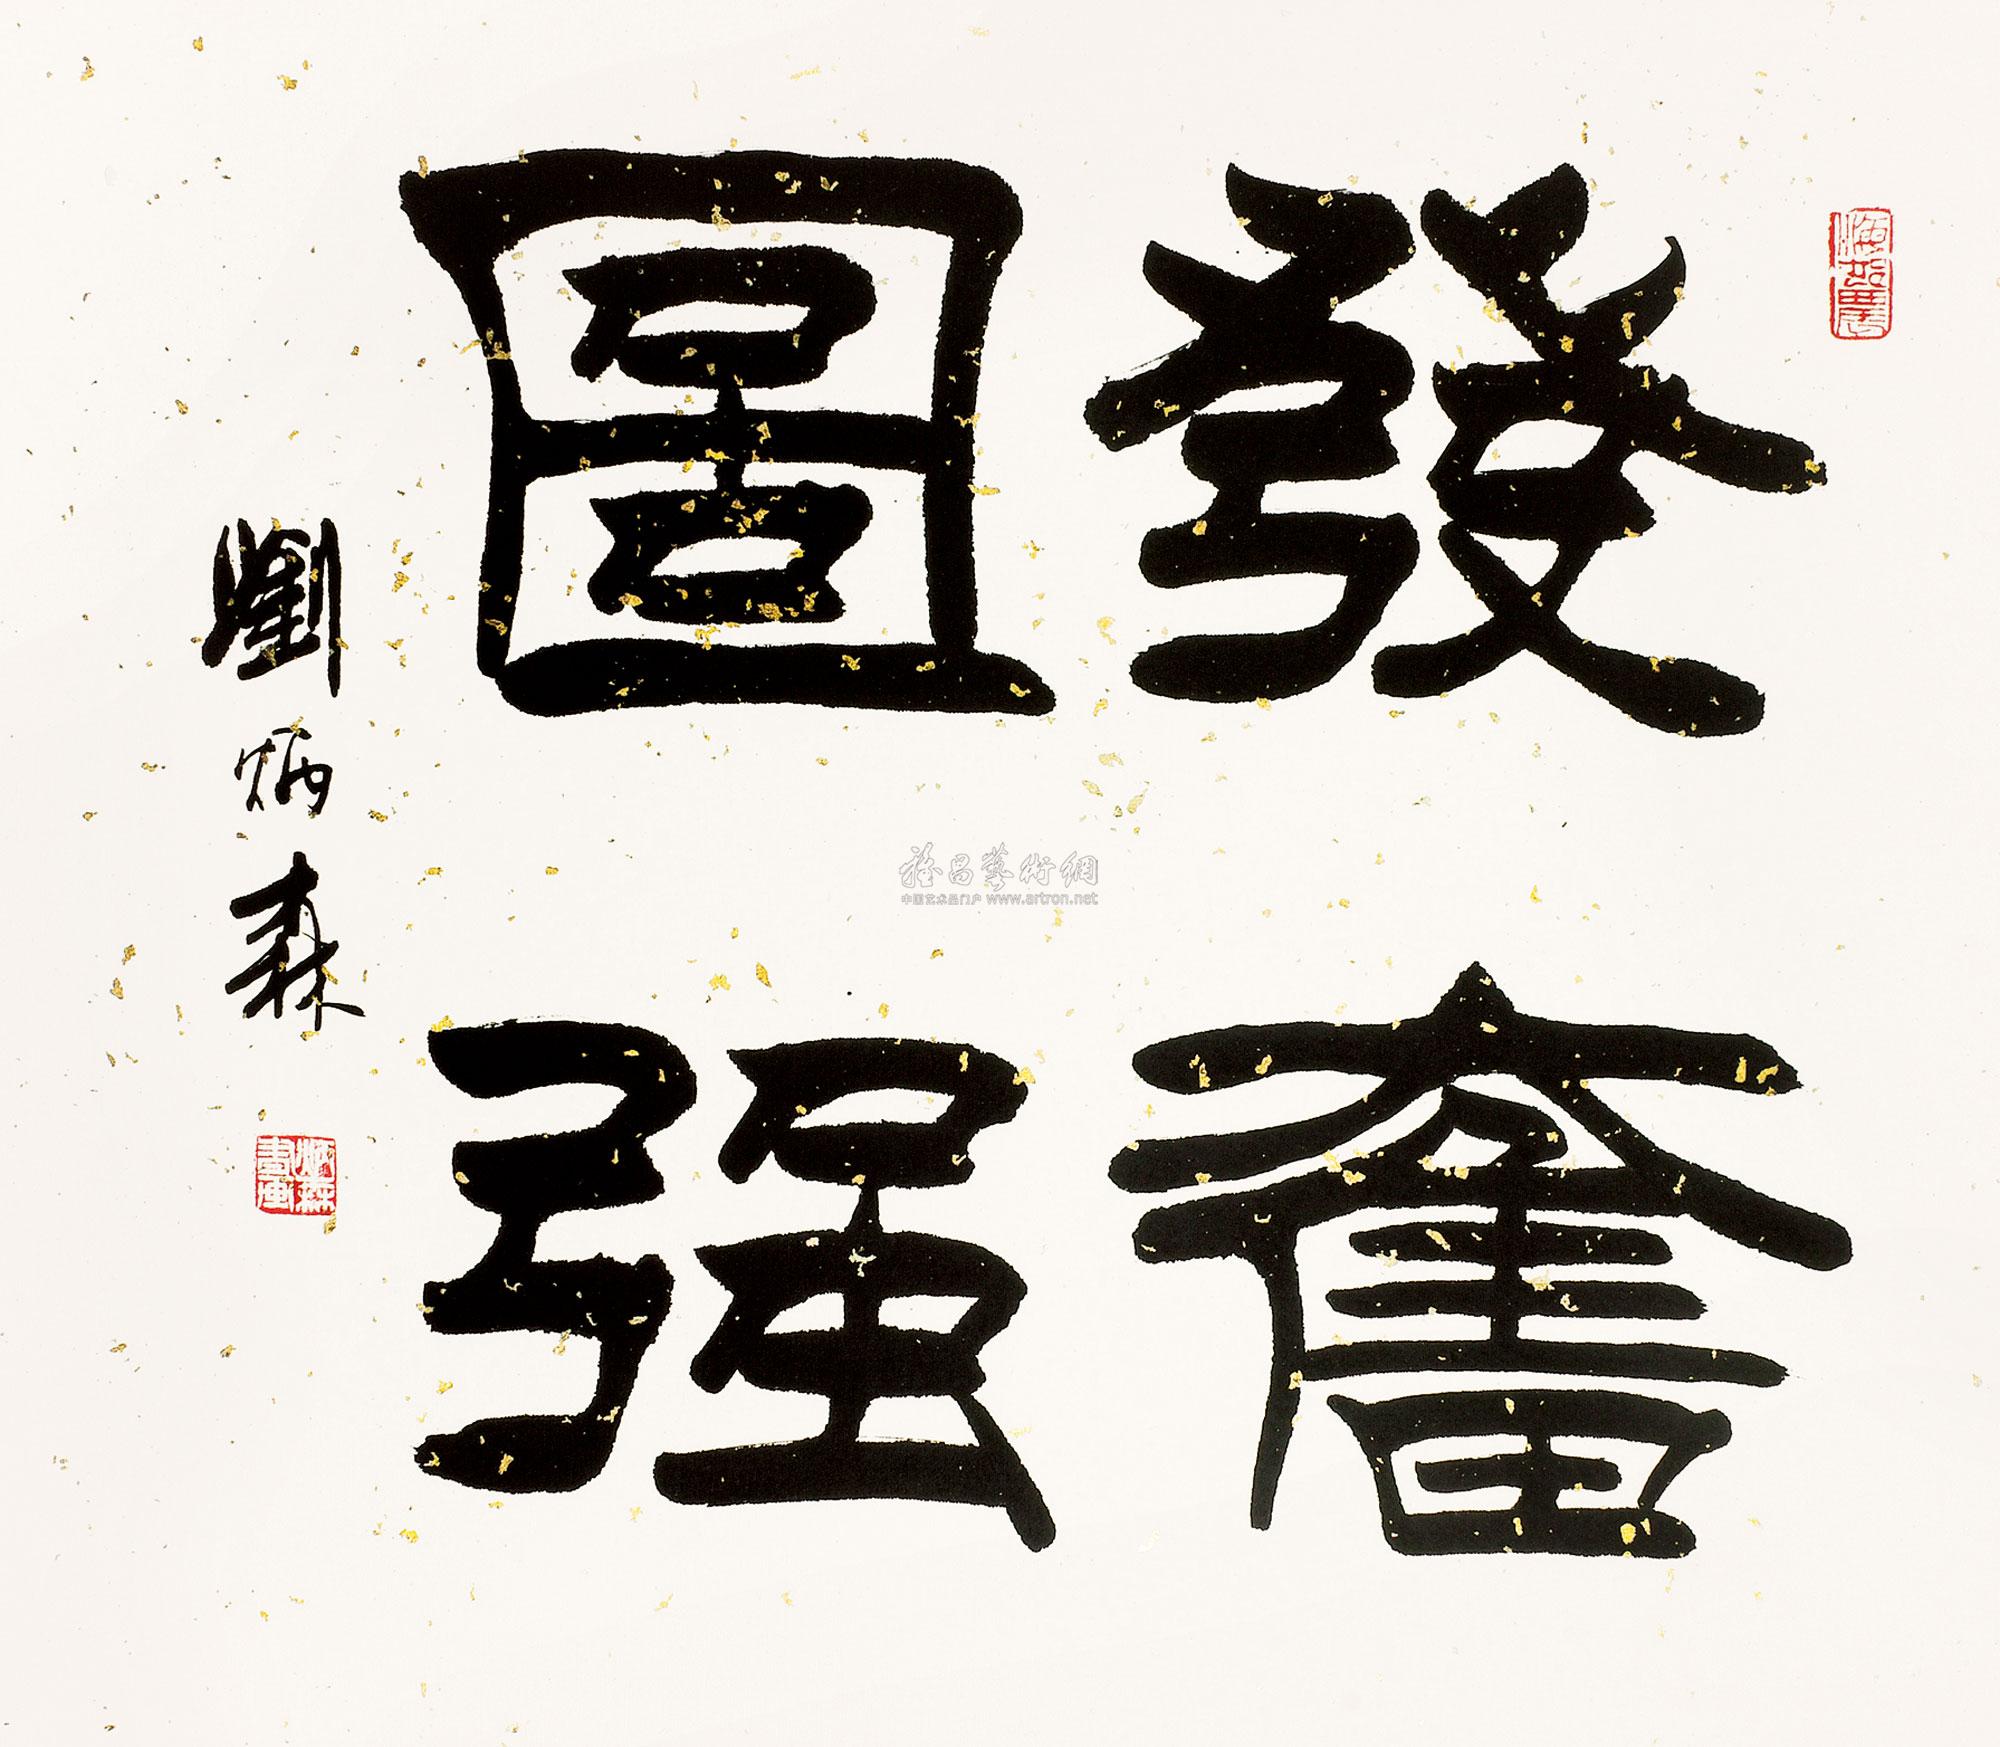 發奮
圖强
劉炳森
炳森書画
雅昌藝術網
中国艺术品门户 www.artron.net